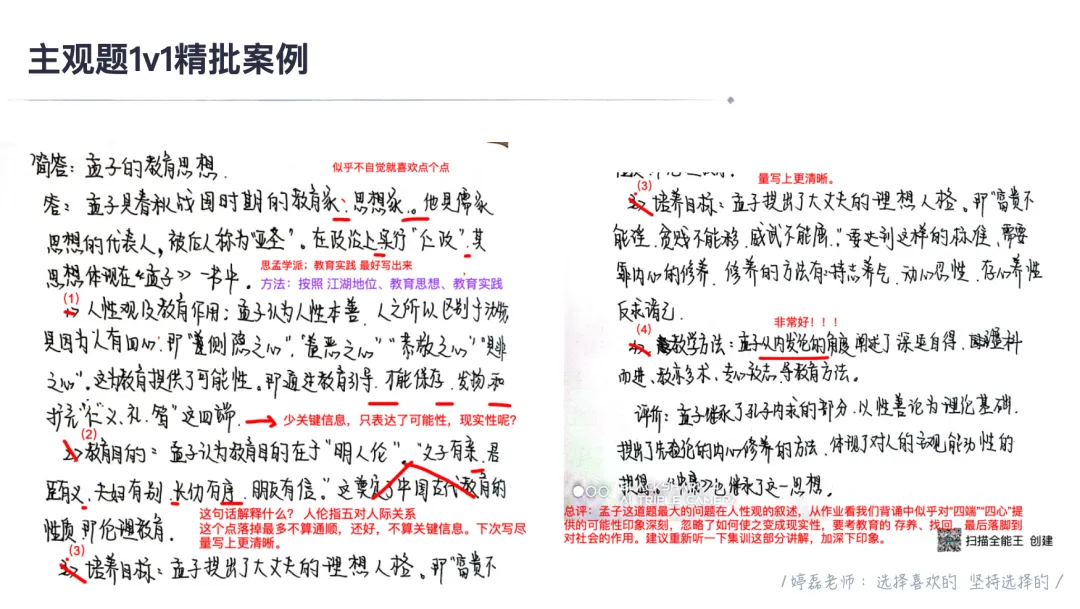 主观题1v1精批案例
简答：孟子的教育思想.
似乎不自觉就喜欢点个点
答：孟子是春秋战国时期的教育家.思想家。他是儒家
思想的代表人，被后人称为“亚圣”。在政治上实行“仁政”.其
思想体现在《孟子》一书中.
思孟学派；教育实践 最好写出来
方法：按照 江湖地位、教育思想、教育实践
(1)
人性观及教育作用：孟子认为人性本善，人之所以区别于动物
是因为人有四心.即“羞恻隐之心”.“羞恶之心”“恭敬之心”“是非
之心”.这为教育提供了可能性。即通过教育引导.才能保存.发扬.和
扩充“仁.义.礼.智”这四端.
少关键信息，只表达了可能性，现实性呢？
(2)
教育目的：孟子认为教育目的在于“明人伦”。“父子有亲.君
臣有义.夫妇有别.长幼有序.朋友有信。”这奠定了中国古代教育的
性质.即伦理教育.
这句话解释什么？ 人伦指五对人际关系
这个点落掉最多不算通顺，还好，不算关键信息。下次写尽
量写上更清晰。
(3)
培养目标：孟子提出了大丈夫的理想人格.即“富贵不
量写上更清晰。
(3)
培养目标：孟子提出了大丈夫的理想人格。即“富贵不
能淫.贫贱不能移.威武不能屈.”要达到这样的标准.需要
靠内心的修养.修养的方法有：持志养气.动心忍性.存心养性
反求诸己.
非常好！！！
(4)
教学方法：孟子从内发论的角度阐述了深造自得.盈科
而进、教亦多术、专心致志.等教育方法。
评价：孟子继承了孔子内求的部分.以性善论为理论基础.
提出了先验论的内心修养的方法.体现了对人的主观能动性的
也继承了这一思想.
AI TRIPLE CAMERA
总评：孟子这道题最大的问题在人性观的叙述，从作业看我们背诵中似乎对“四端”“四心”提
供的可能性印象深刻，忽略了如何使之变成现实性，要考教育的 存养、找回、最后落脚到
对社会的作用。建议重新听一下集训这部分讲解，加深下印象。
扫描全能王 创建
/婷磊老师：选择喜欢的 坚持选择的/